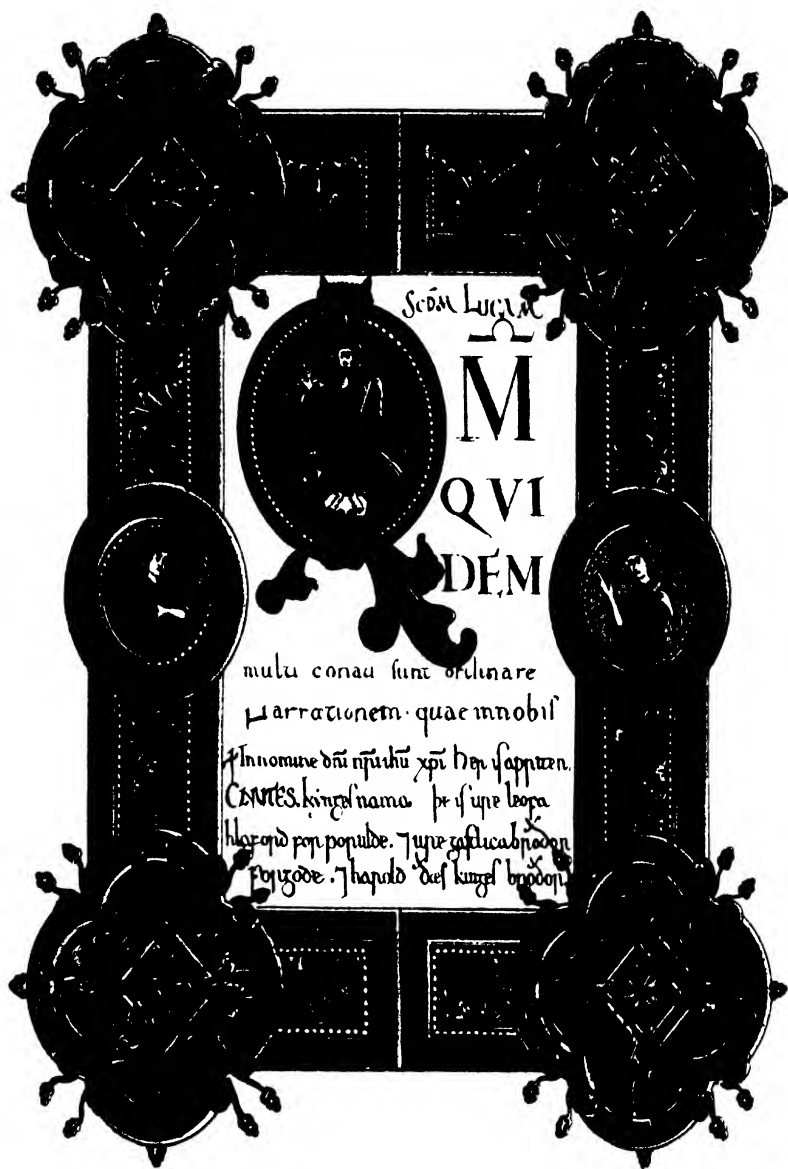 SCD̄M LUCAM
Q M̄
QVI
DEM
multi conati sunt ordinare
Narrationem. quae innobis
+ In nomine dn̄i nr̄i ihū xp̄i. Her is aƿriten.
CNVTES. kinges nama. þe is ure leofa
hlaford for ƿorulde. ⁊ ure gastlica broðor
for gode. ⁊ harold ðæs kinges broðor.